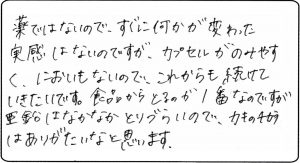 薬ではないので、すぐに何かが変わった
実感はないのですが、カプセルがのみやす
く、においもないので、これからも続けて
いきたいです。食品からとるのが1番なのですが
亜鉛はなかなかとりづらいので、カキのチカラ
はありがたいなと思います。